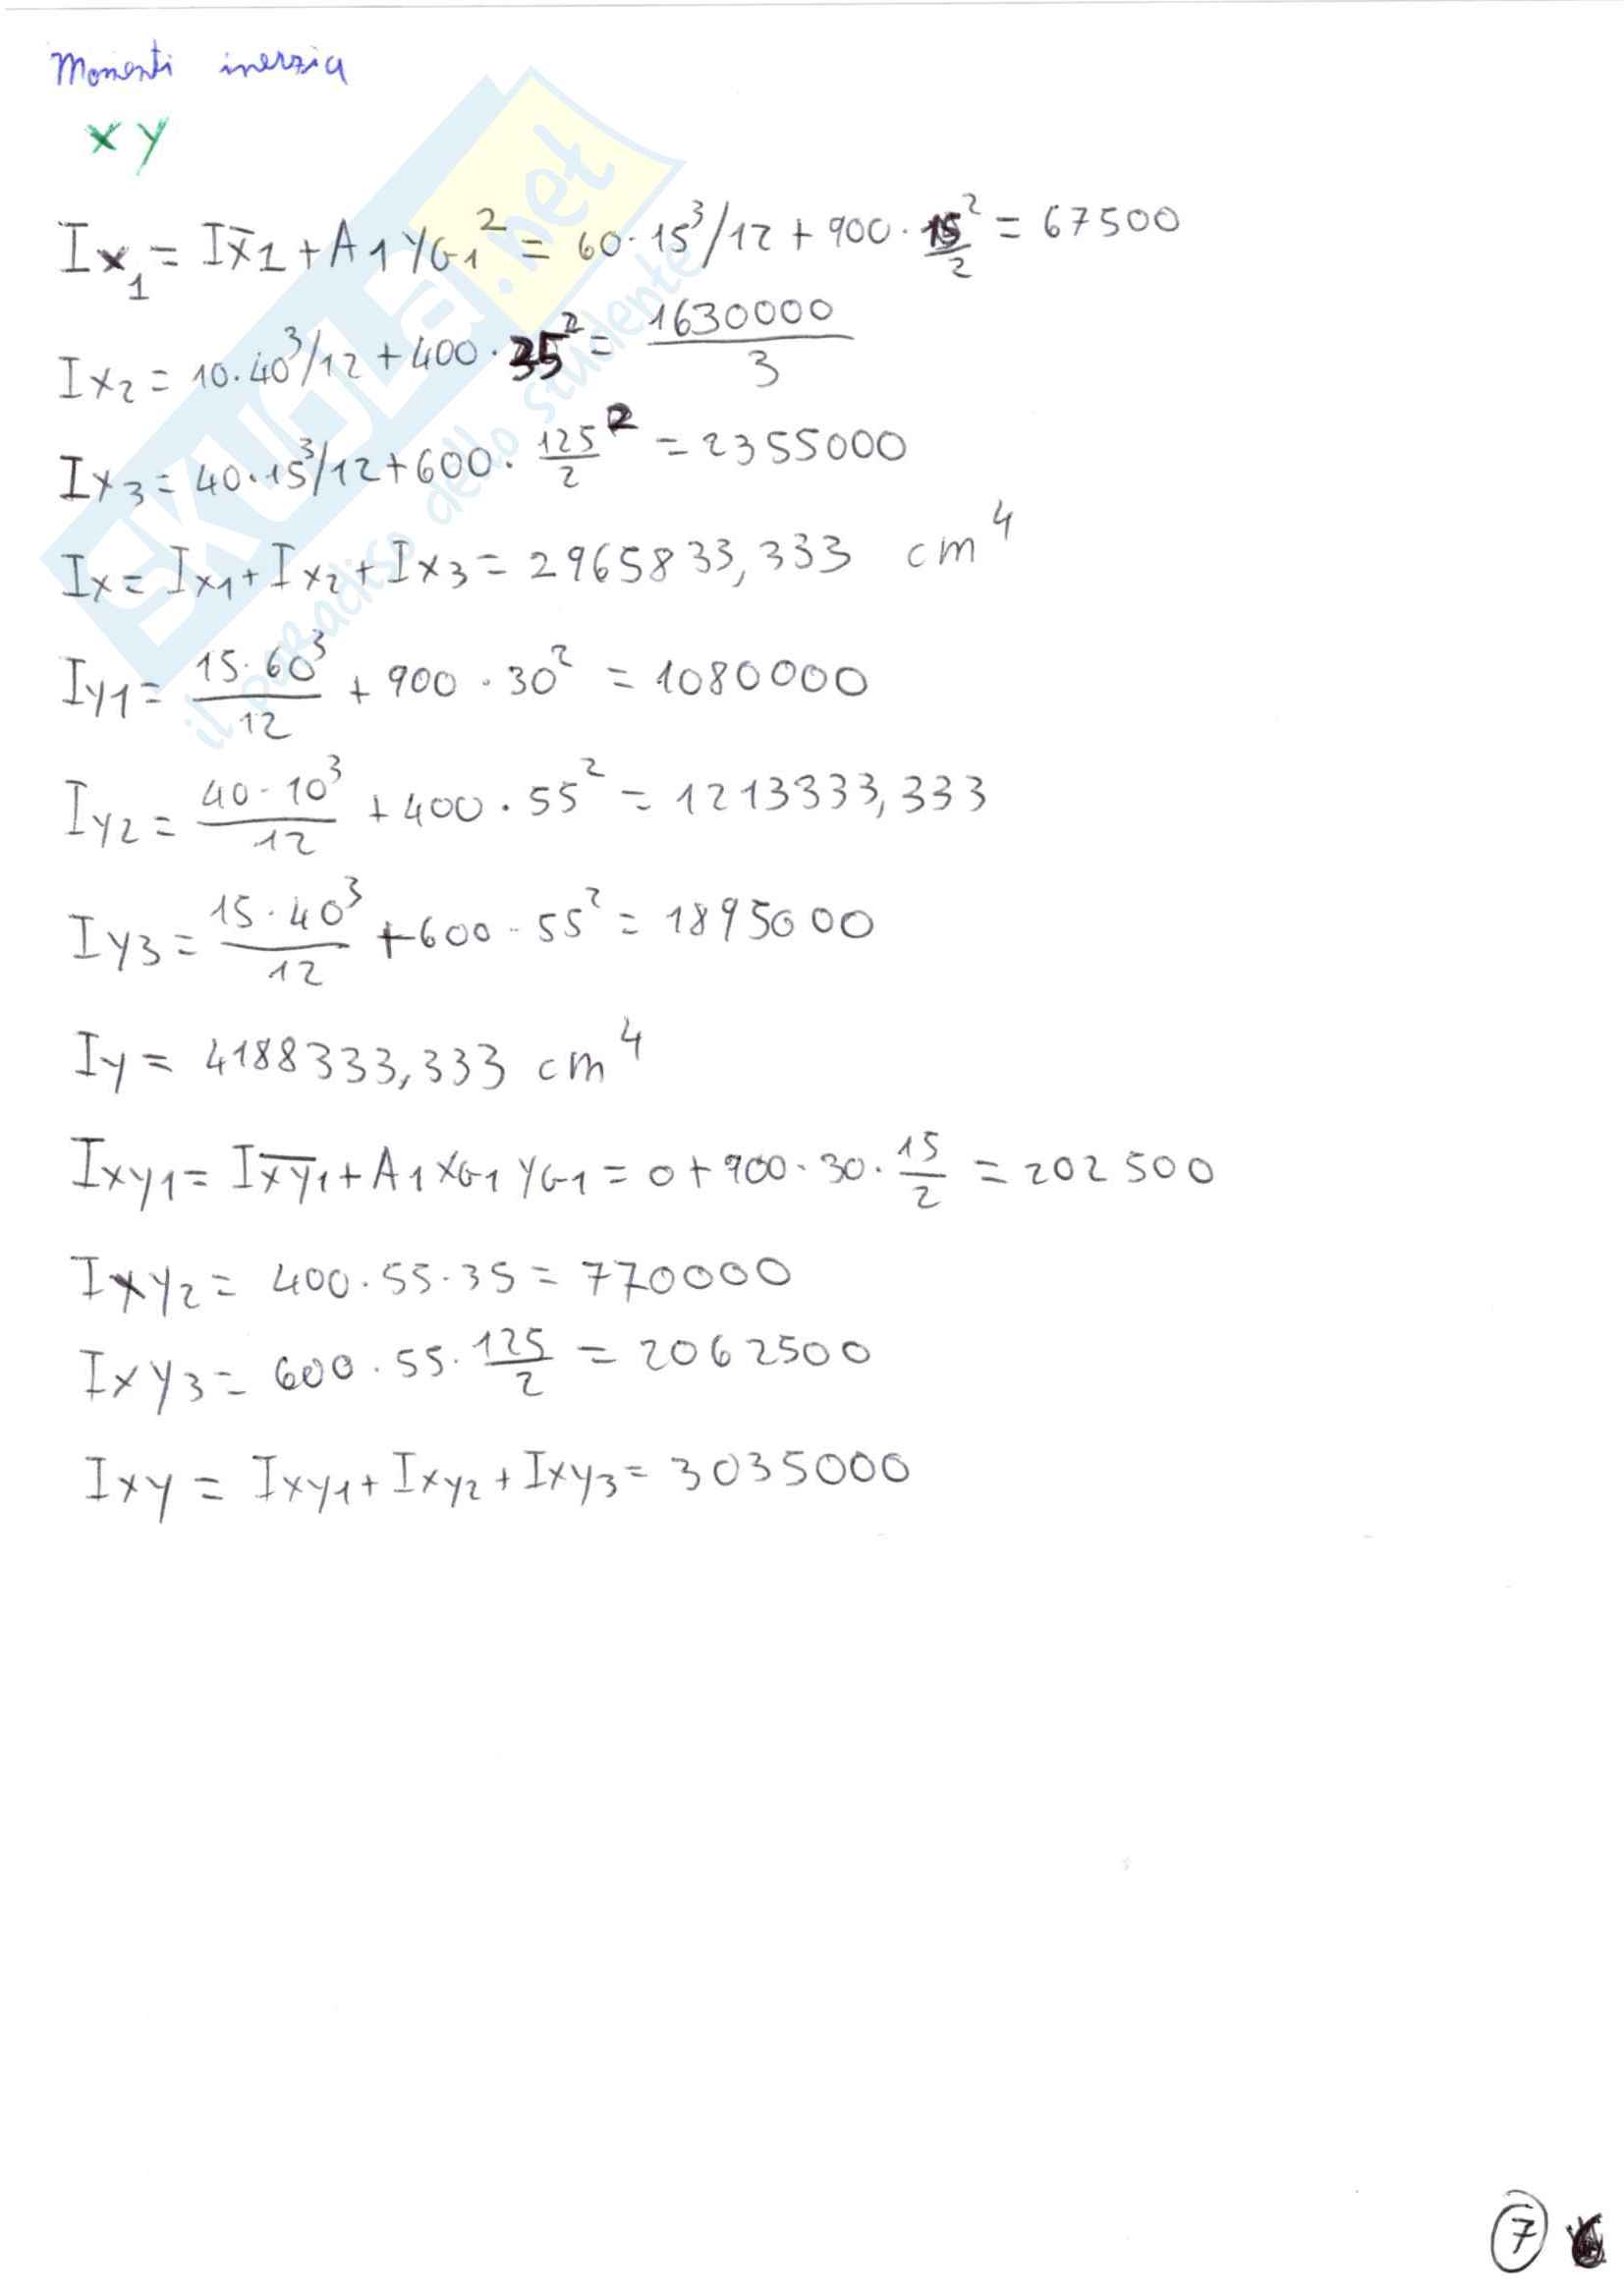 Momenti inerzia
x y
Ix1 = Ix̅1 + A1 yG1² = 60·15³/12 + 900·15/2² = 67500
Ix2 = 10·40³/12 + 400·35² = 1630000/3
Ix3 = 40·15³/12 + 600·125/2² = 2355000
Ix = Ix1 + Ix2 + Ix3 = 2965833,333 cm⁴
Iy1 = 15·60³/12 + 900·30² = 1080000
Iy2 = 40·10³/12 + 400·55² = 1213333,333
Iy3 = 15·40³/12 + 600·55² = 1895000
Iy = 4188333,333 cm⁴
Ixy1 = Ix̅y̅1 + A1 xG1 yG1 = 0 + 900·30·15/2 = 202500
Ixy2 = 400·55·35 = 770000
Ixy3 = 600·55·125/2 = 2062500
Ixy = Ixy1 + Ixy2 + Ixy3 = 3035000
7
SKUOLa.net
il paradiso dello studente